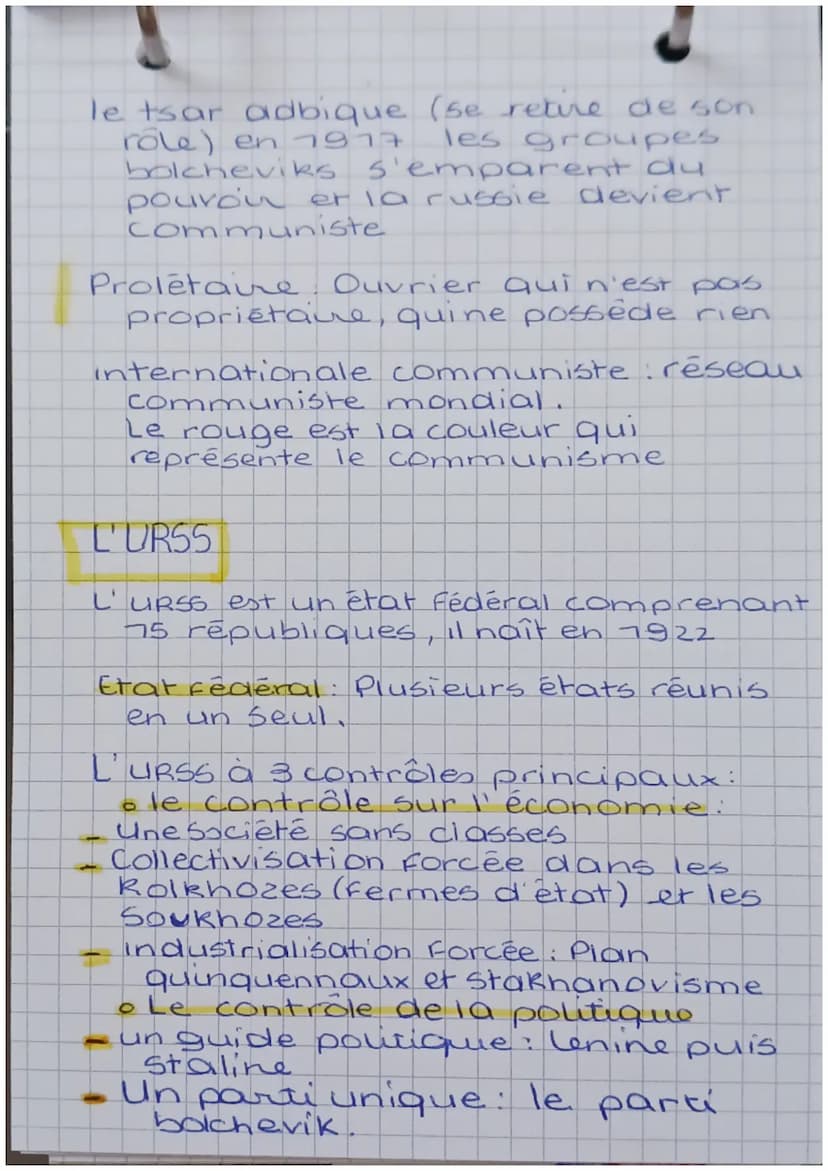 le tsar adbique (se retire de son
rôle) en 1917 les groupes
bolcheviks s'emparent du
pouvoir et la russie devient
communiste
Prolétaire : Ouvrier qui n'est pas
propriétaire, qui ne possède rien
internationale communiste : réseau
communiste mondial.
Le rouge est la couleur qui
représente le communisme
L'URSS
L'URSS est un état Fédéral comprenant
15 républiques, il naît en 1922
Etat Fédéral : Plusieurs états réunis
en un seul.
L'URSS à 3 contrôles principaux :
• le contrôle sur l'économie :
- Une société sans classes
- Collectivisation Forcée dans les
Kolkhozes (Fermes d'état) et les
Soukhozes
- industrialisation Forcée : Plan
quinquennaux et Stakhanovisme
• Le contrôle de la politique
- un guide politique : Lenine puis
Staline
- Un parti unique : le parti
bolchevik.